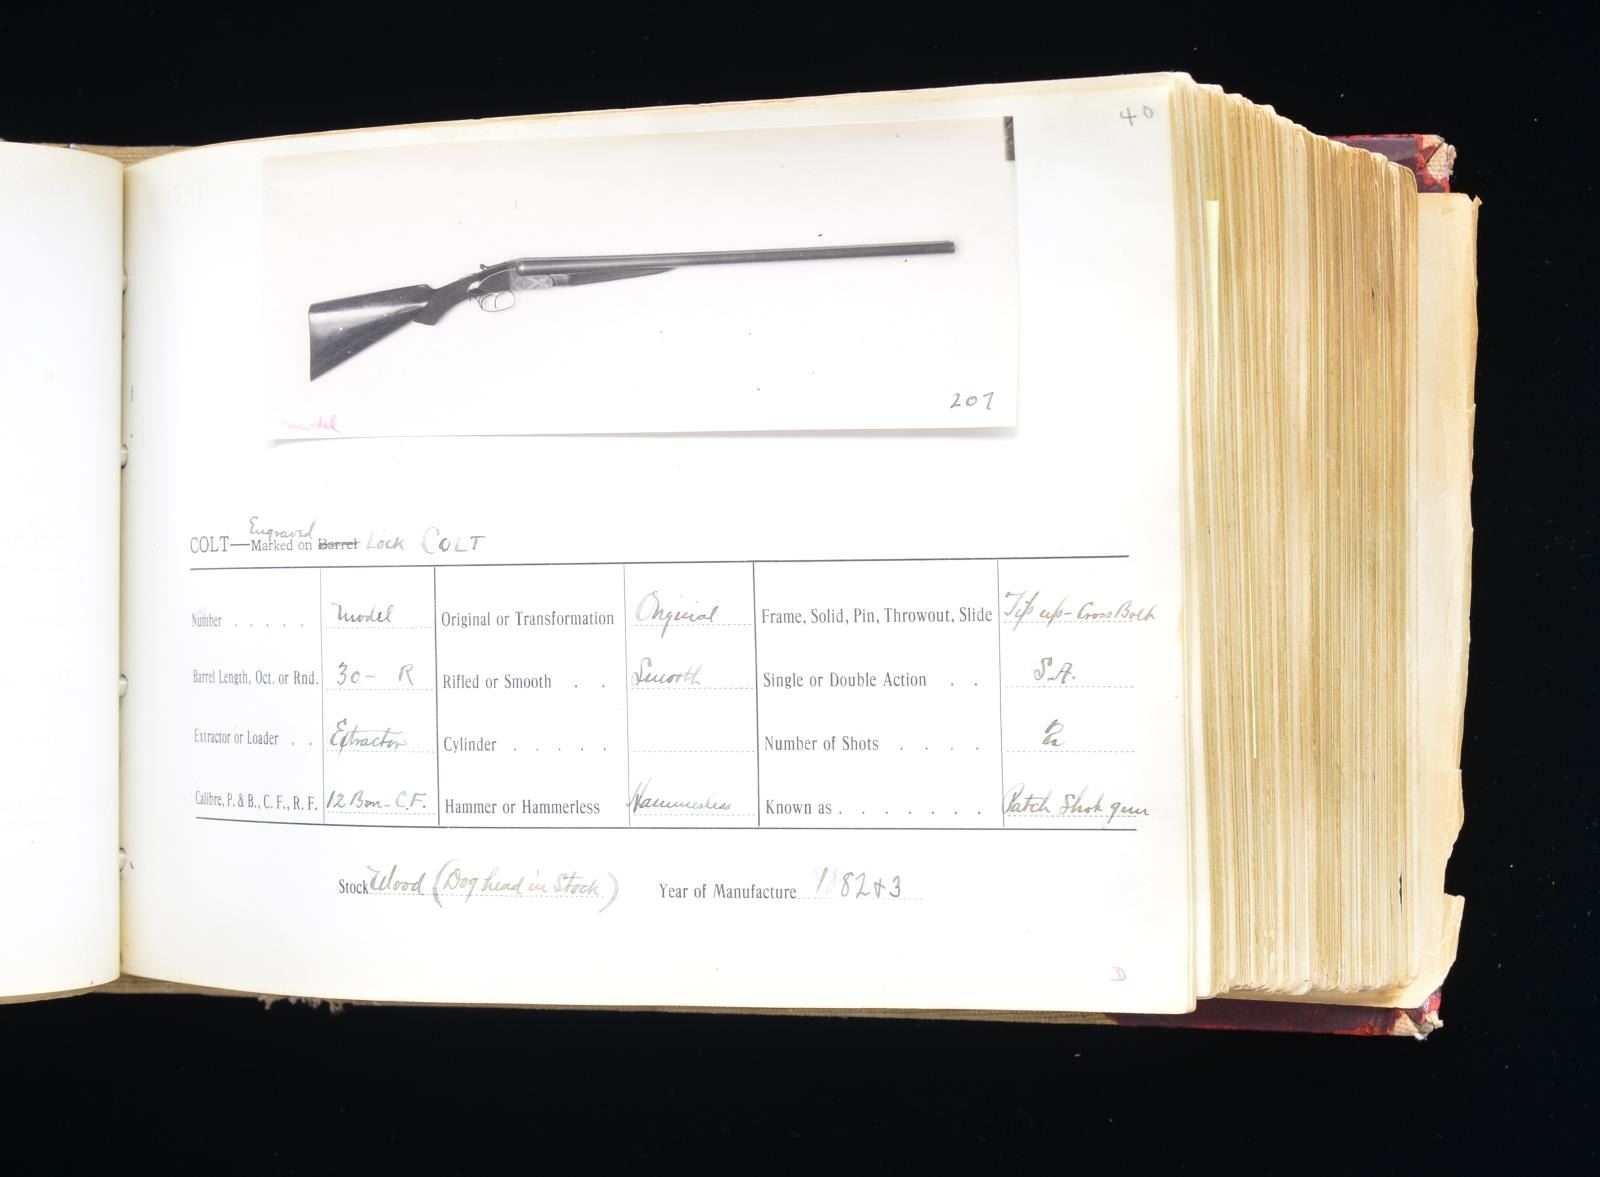 40
207
model
Engraved
COLT—Marked on Barrel Lock COLT
Number . . . . . Model Original or Transformation Original Frame, Solid, Pin, Throwout, Slide Tip up - Cross Bolt
Barrel Length, Oct. or Rnd. 30 - R Rifled or Smooth . . Smooth Single or Double Action . . S.A.
Extractor or Loader . . Extractor Cylinder . . . . . Number of Shots . . . .
Calibre, P. & B., C. F., R. F. 12 Bore - C.F. Hammer or Hammerless Hammerless Known as . . . . . . . Patch Shot gun
Stock Wood (Dog head in Stock) Year of Manufacture 1882 & 3
D